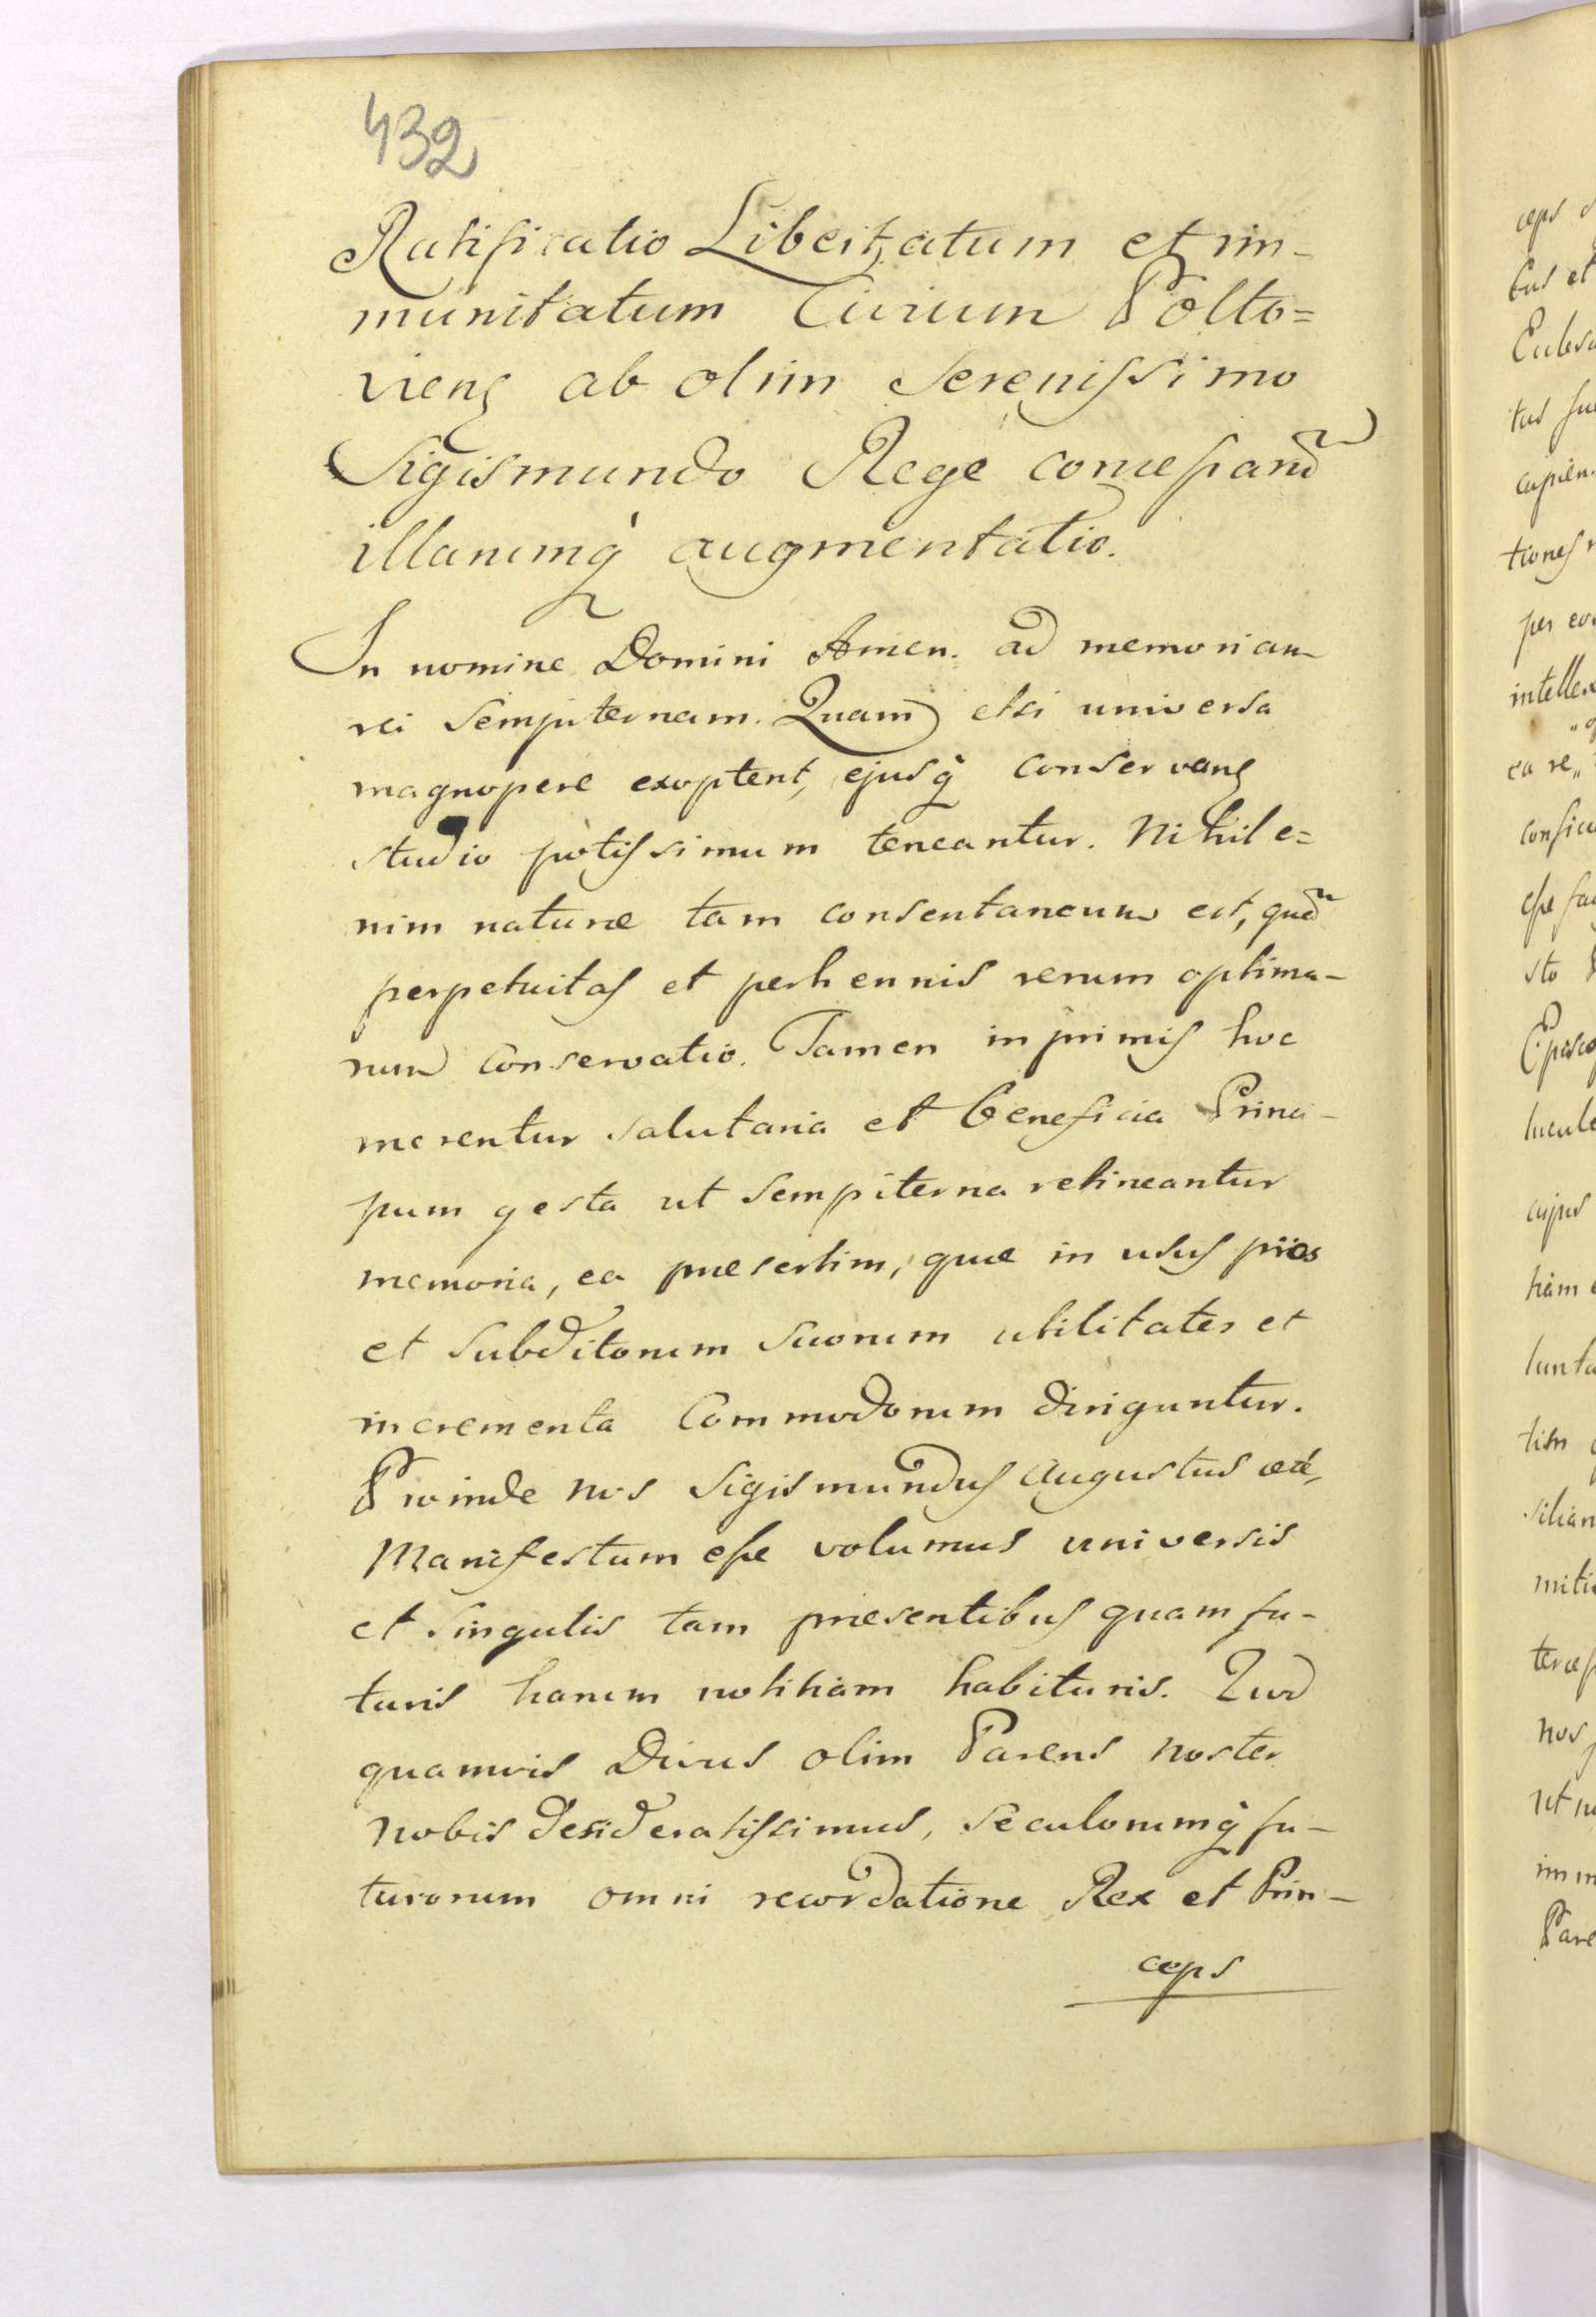 432
Ratificatio Libertatum et im-
munitatum Civium Polto=
viens ab olim Serenissimo
Sigismundo Rege concessarũ
illarumq̀ augmentatio.
In nomine Domini Amen. ad memoriam
rei Sempiternam. Quam etsi universa
magnopere exoptent, ejusq̀ Conservans
studio potissimum teneantur. Nihil e=
nim naturæ tam consentaneum est, quã
perpetuitas et perhennis rerum optima-
rum Conservatio. Tamen inprimis hoc
merentur salutaria et beneficia Princi-
pum gesta ut Sempiterna retineantur
memoria, ea præsertim, quæ in usus pios
et Subditorum Suorum utilitates et
incrementa Commodorum diriguntur.
Proinde nos Sigismundus Augustus etć,
Manifestum esse volumus universis
et Singulis tam præsentibus quam fu-
turis harum notitiam habituris. Quod
quamvis Divus olim Parens Noster
Nobis desideratissimus, Seculorumq̀ fu-
turorum omni recordatione Rex et Prin-
ceps